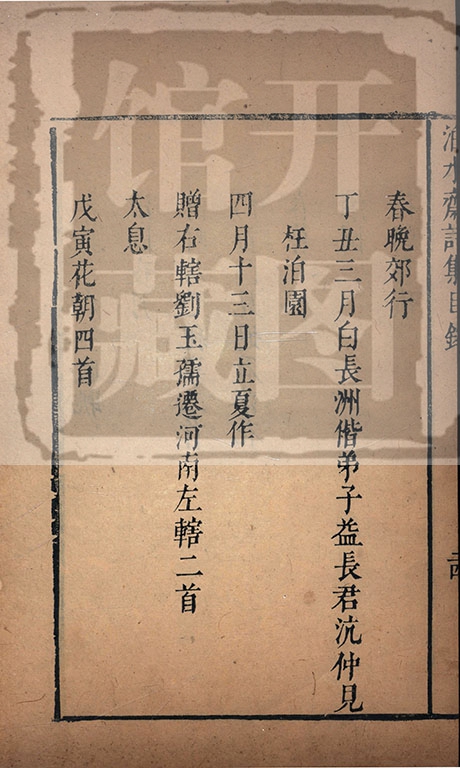 春晚郊行
丁丑三月白長洲偕弟子益長君沆仲見
枉泊園
四月十三日立夏作
贈右轄劉玉孺遷河南左轄二首
太息
戊寅花朝四首
开
馆
图
藏